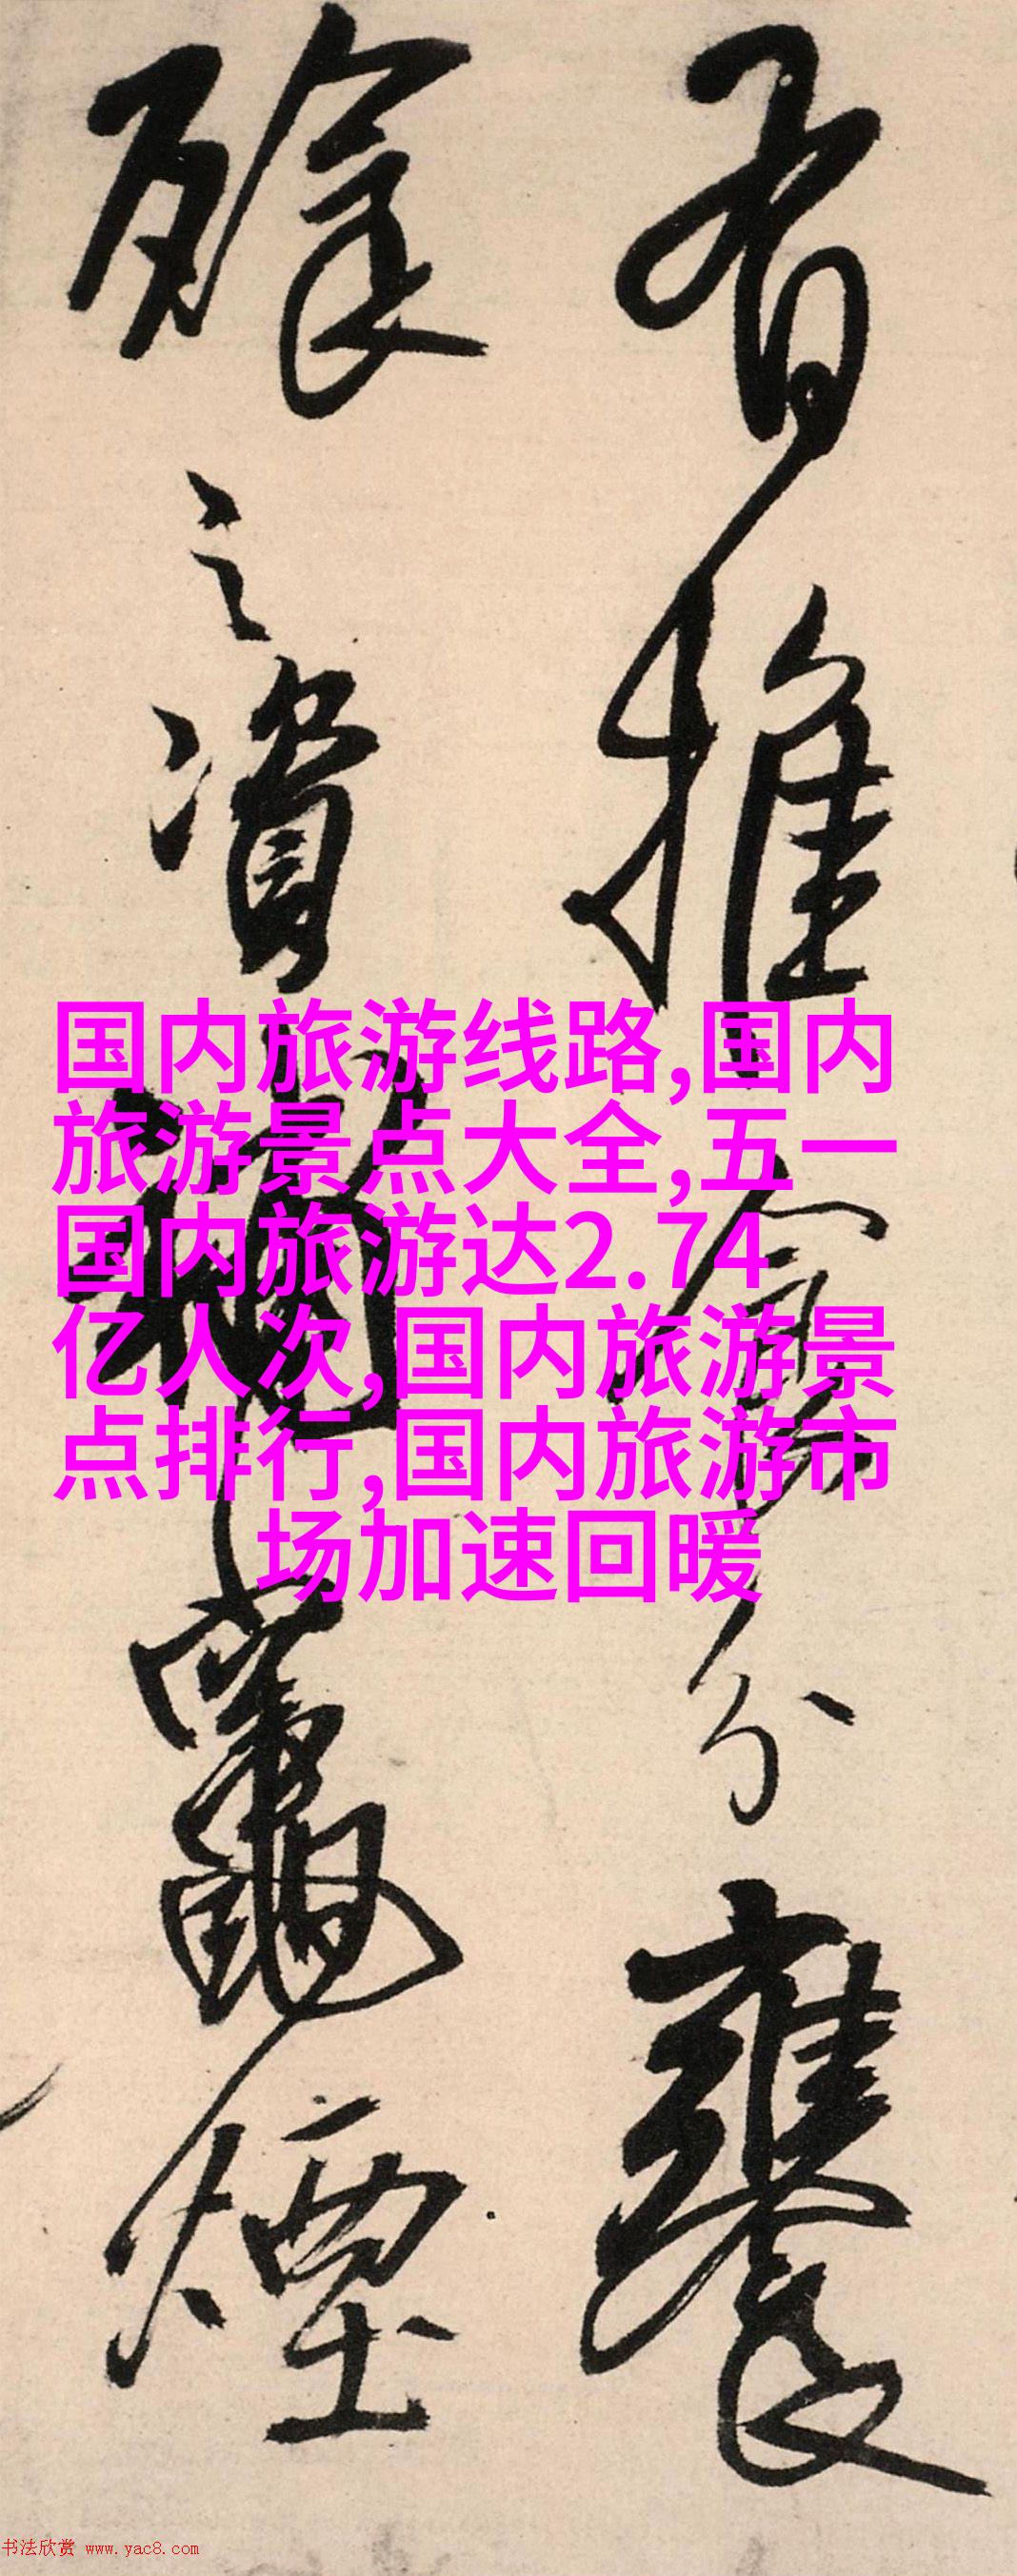 有推舍分甕
餘之資
竈煙
国内旅游线路,国内
旅游景点大全,五一
国内旅游达2.74
亿人次,国内旅游景
点排行,国内旅游市
场加速回暖
书法欣赏 www.yac8.com